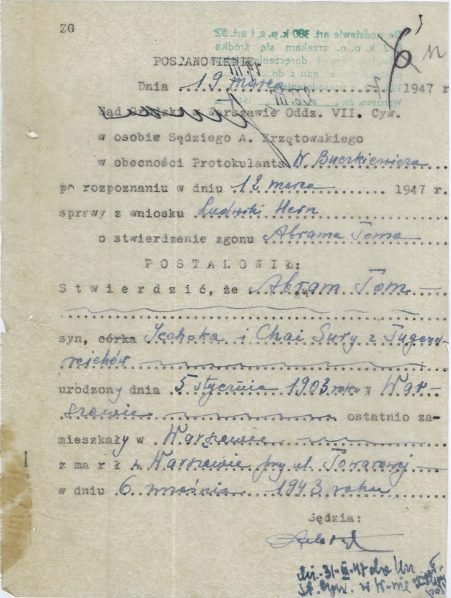 ZG
POSTANOWIENIE
Dnia 19 marca 1947 r
Sąd Grodzki w Warszawie Oddz. VII. Cyw.
w osobie Sędziego A. Krzętowskiego
w obecności Protokulanta W. Buczkiewicza
po rozpoznaniu w dniu 12 marca 1947 r
sprawy z wniosku Ludwiki Hern
o stwierdzenie zgonu Abrama Toma
POSTANOWIŁ:
Stwierdzić, że Abram Tom
syn, córka Icchoka i Chai Sury z Tugend-
reichów
urodzony dnia 5 stycznia 1903 roku w War-
szawie ostatnio za-
mieszkały w Warszawie
zmarł w Warszawie przy ul. Towarowej
w dniu 6 września 1943 roku
Sędzia: